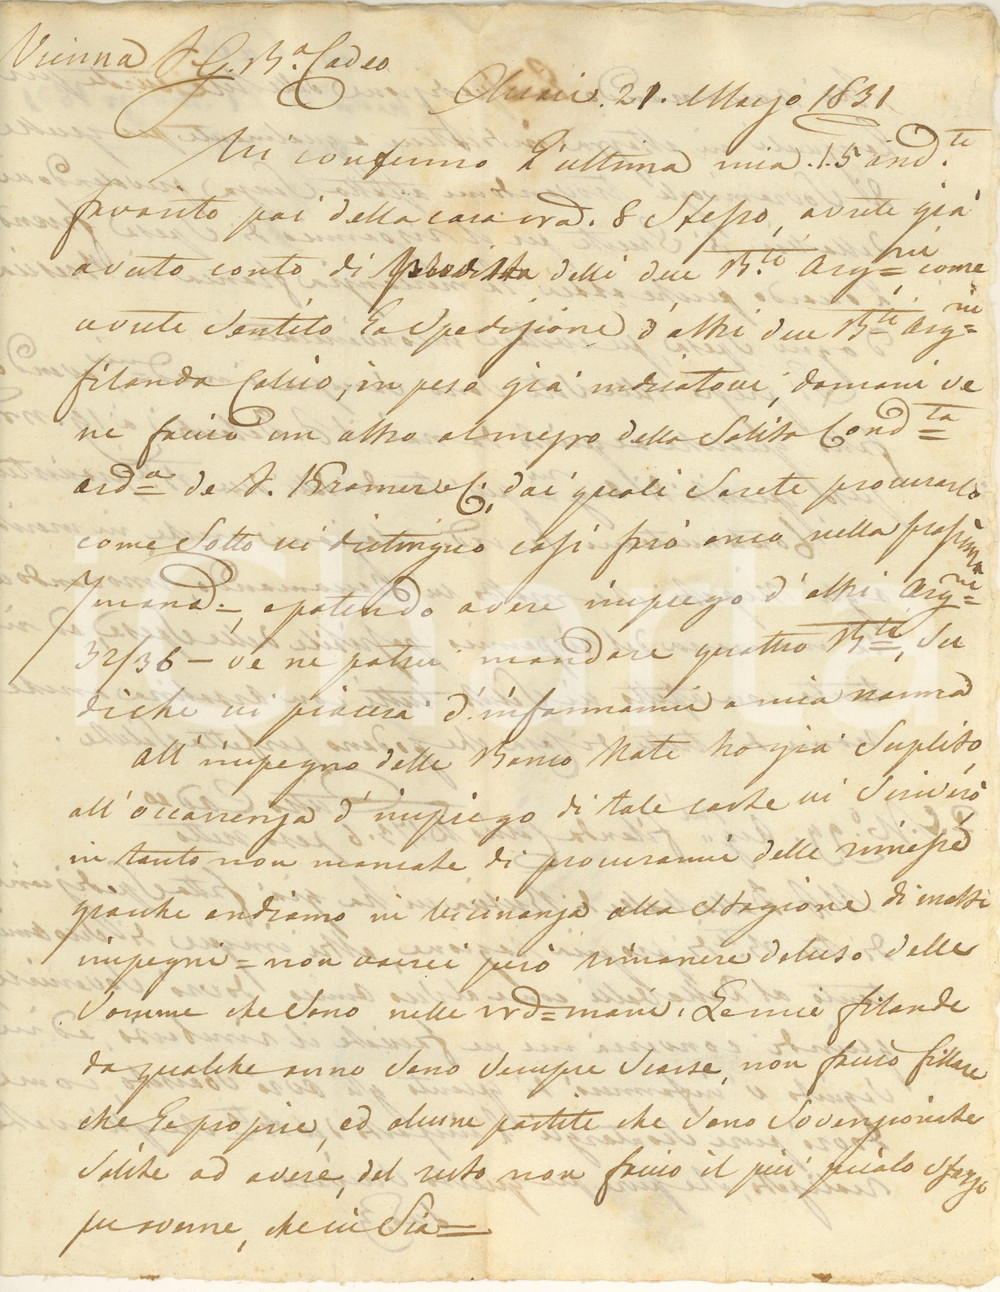 Vienna S. G. Ba. Cadeo
Chiari. 21. Marzo 1831
Vi confermo l'ultima mia .15 and.te
favorito poi della cara vra. 8 Stesso, avrete già
avuto conto di delli due B.li Org.ni come
avrete Sentito la Spedizione d'altri due B.li Org.ni
filanda Calcio, in peso già indicatovi, domani ve
ne faccio un altro al mezzo della Solita Cond.ta
ord.a de S. Kramer e C. dai quali Sarete procurarlo
come Sotto vi distinguo così farò anco nella prossima
7mana, e potendo avere impiego d'altri Org.ni
32/36 - ve ne potrei mandare quattro B.li, Su
di che vi piacerà d'informarmi a mia norma
All'impegno delle Banco Note ho già Suplito,
all'occorrenza d'impiego di tale carte vi Scriverò
in tanto non mancate di procurarmi delle rimesse
giacchè andiamo in vicinanza alla Stagione di molti
impegni = non vorrei però rimanere deluso delle
Somme che Sono nelle vrd= mani. Le mie filande
da qualche anno Sono Sempre Scarse, non faccio fillare
che le proprie, ed alcune partite che Sono Sovenzioniche
Solite ad avere, del resto non faccio il più picolo Sforzo
per averne, che vi Sia =
iCharta